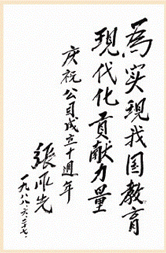 為实现我国教育
现代化貢献力量
庆祝公司成立十週年
張承先
一九八八、六、二十七、